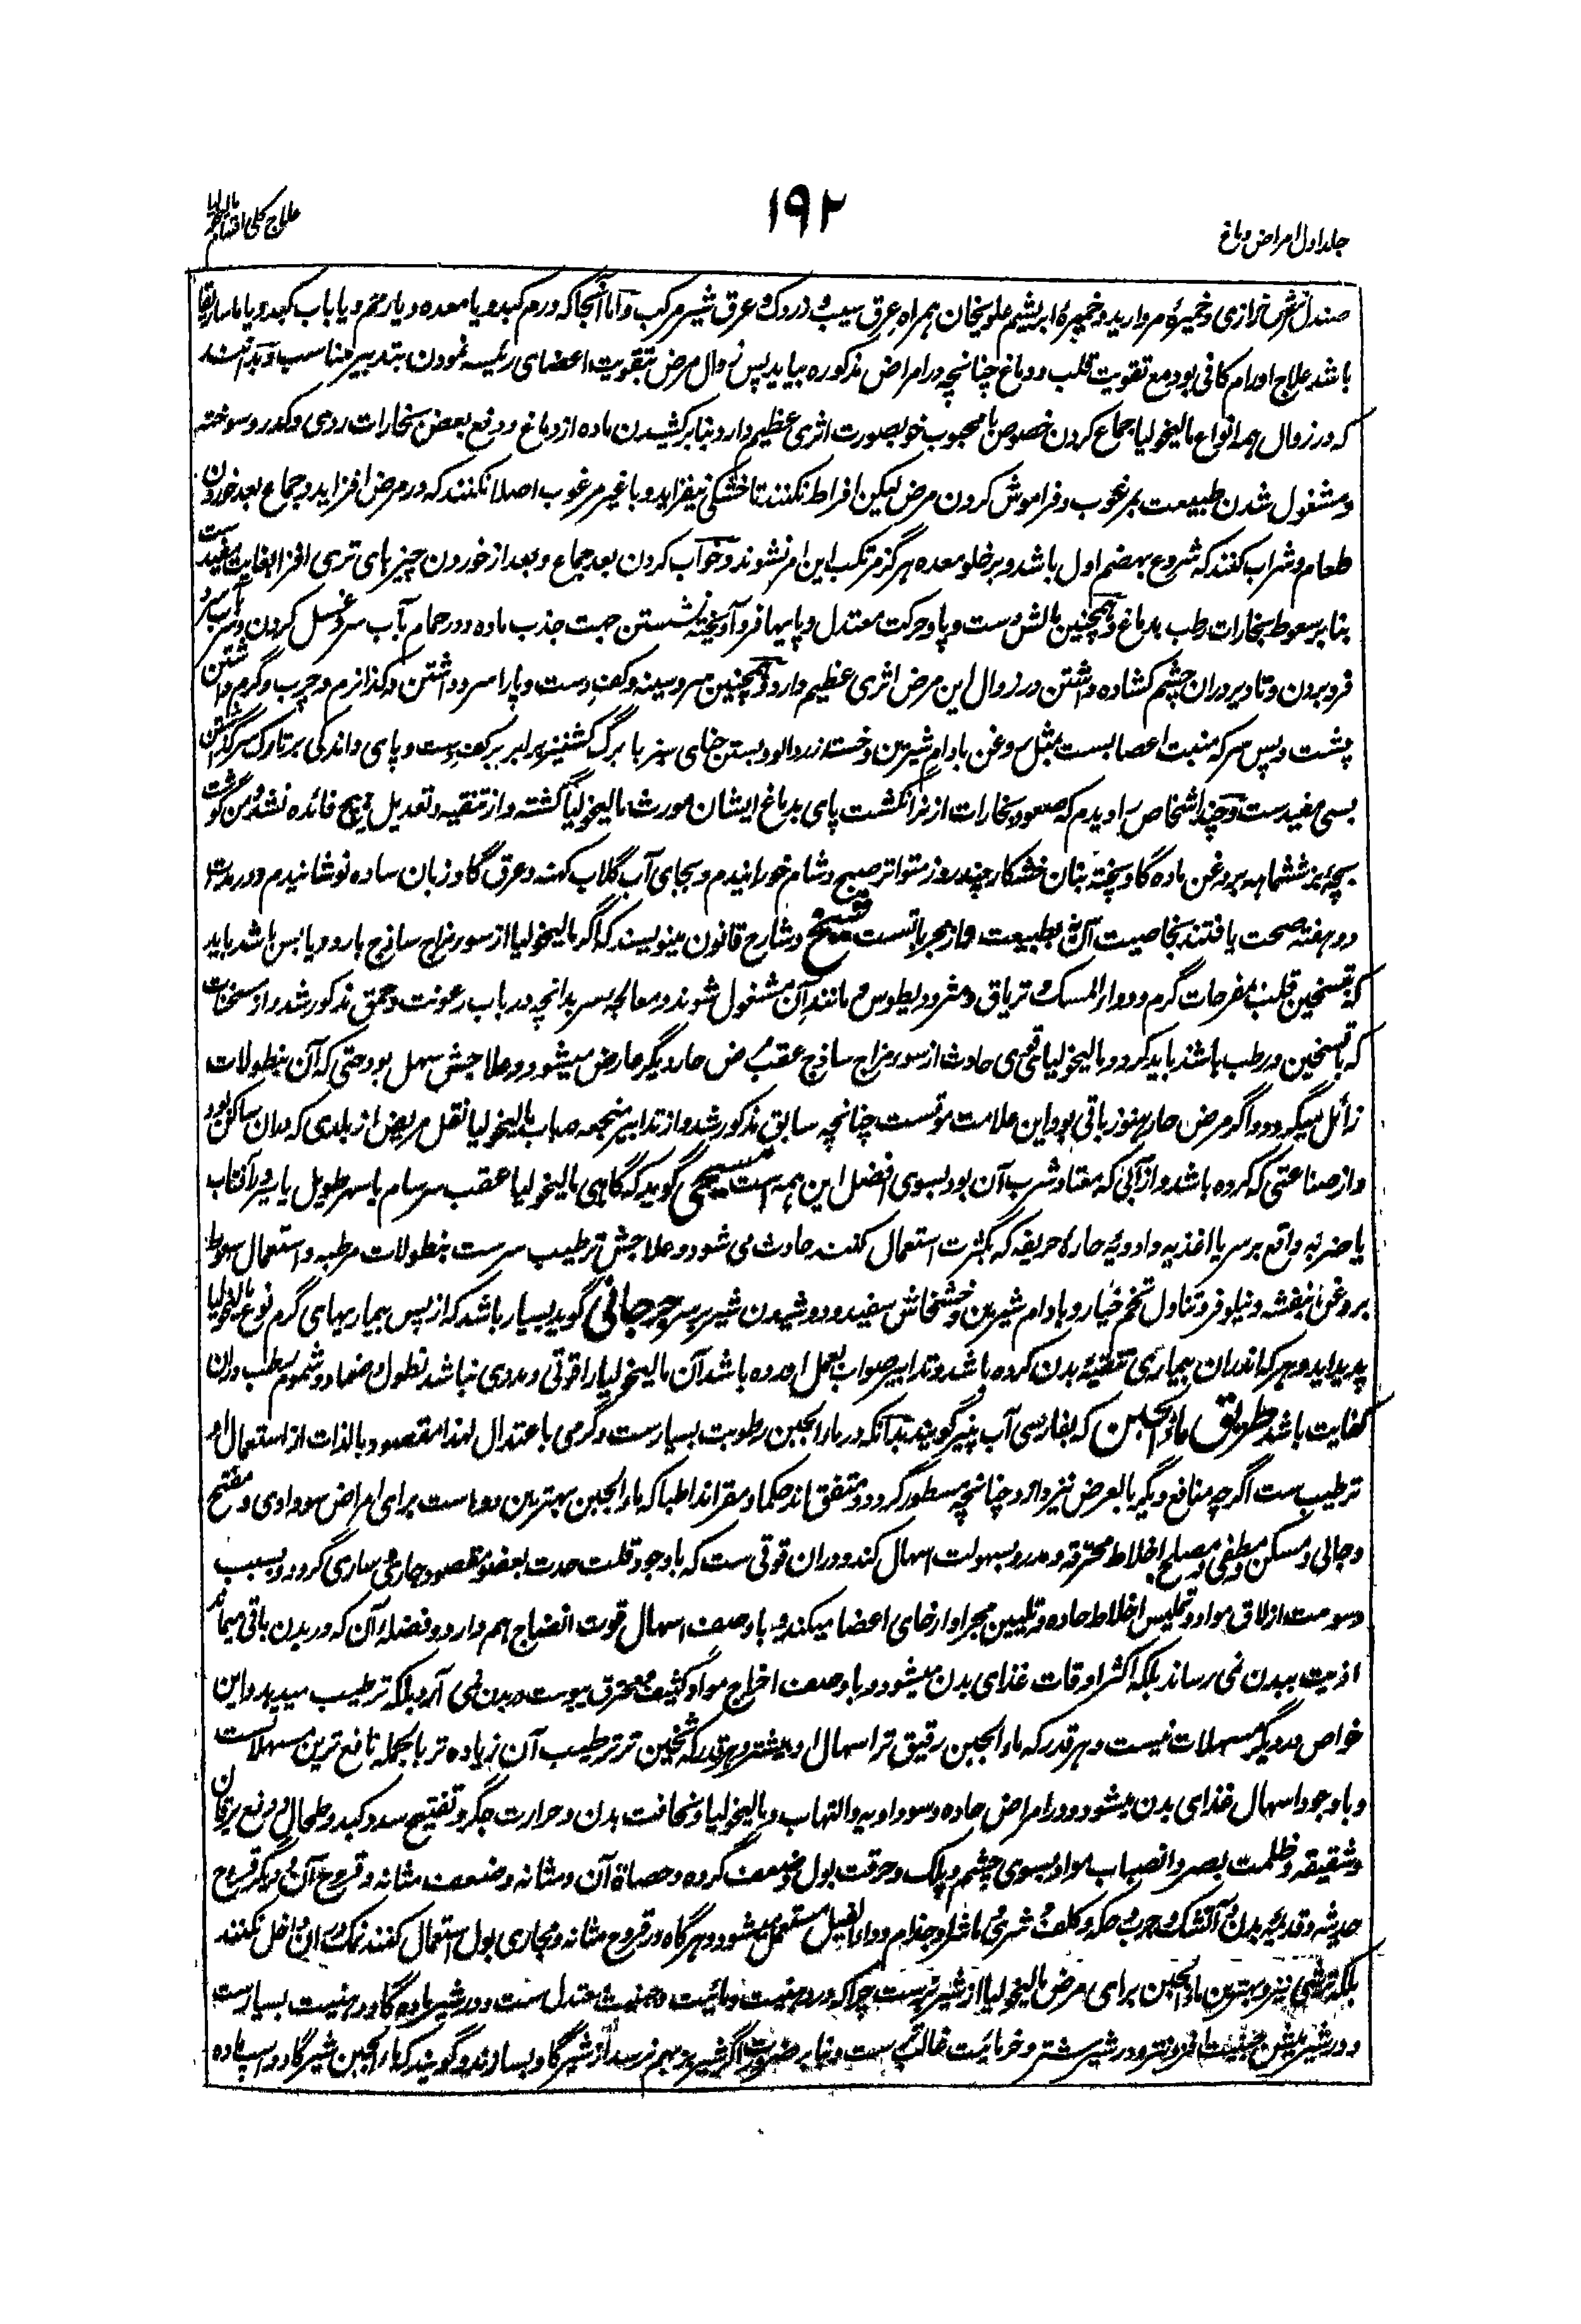 جلد اول امراض دماغ
۱۹۲
علاج کلی اقسام مالیخولیا
صندل ترش رازی و خمیرهٔ مروارید و خمیرهٔ ابریشم علویخان همراه عرق سیب و زردک و عرق شیر مرکب و اما آنجا که ورم کبد و یا معده و یا رحم و یا باب کبد و یا ماساریقا
باشد علاج اورام کافی بود مع تقویت قلب و دماغ چنانچه در امراض مذکوره بیاید پس زوال مرض بتقویت اعضای رئیسه نمودن بتدبیر مناسب و بدانند
که در زوال همه انواع مالیخولیا جماع کردن خصوص با محبوب خوبصورت اثری عظیم دارد بنا بر کشیدن ماده از دماغ و دفع بعض بخارات ردی و کدر و سوخته
و مشغول شدن طبیعت بمرغوب و فراموش کردن مرض لیکن افراط نکنند تا خشکی نیفزاید و با غیر مرغوب اصلا نکنند که در مرض افزاید و جماع بعد خوردن
طعام و شراب کنند که شروع بهضم اول باشد و بر خلو معده هرگز مرتکب این امر نشوند و خواب کردن بعد جماع و بعد از خوردن چیزهای تری افزا بغایت مفید ست
بنابر سعوط بخارات رطب بدماغ و همچنین مالش دست و پا و حرکت معتدل و پایها فرو آویخته نشستن جهت جذب ماده و در حمام بآب سرد غسل کردن و سر بآب سرد
فرو بردن و تا دیر دران چشم کشاده داشتن در زوال این مرض اثری عظیم دارد و همچنین سر و سینه و کف دست و پا را سرد داشتن و کذا نرم و چرب و گرم داشتن
پشت و پس سر که منبت اعصابست بمثل روغن بادام شیرین و خسته زردالو و بستن حنای سبز با برگ گشنیز برابر بر کف دست و پای و اندکی بر تارک سر گذاشتن
بسی مفیدست و چند اشخاص را دیدم که صعود بخارات از نر انگشت پای بدماغ ایشان مورث مالیخولیا گشته و از تنقیه و تعدیل هیچ فائده نشد و من گوشت
بچه بز ششماهه بروغن ماده گاو پخته بنان خشکار چند روز متواتر صبح و شام خورانیدم و بجای آب گلاب کهنه و عرق گاو زبان ساده نوشانیدم و در مدت
دو هفته صحت یافتند بخاصیت آن نه بطبیعت و از مجرباتست شیخ و شارح قانون مینویسند که اگر مالیخولیا از سوء مزاج ساذج بارد و یابس باشد باید
که بتسخین قلب بمفرحات گرم و دواء المسک و تریاق و مثرودیطوس و مانند آن مشغول شوند و معالجه بسر بدانچه در باب رعونت و حمق مذکور شد و از مسخنات
که با تسخین مرطب باشند باید کرد و مالیخولیای حادث از سوء مزاج ساذج عقب مرض حار دیگر عارض میشود و علاجش سهل بود حتی که آن بنطولات
زائل میگردد و اگر مرض حار هنوز باقی بود این علامت موتست چنانچه سابق مذکور شد و از تدابیر منجحه صاحب مالیخولیا نقل مریض از بلدی که دران ساکن بود
و از صناعتی که کرده باشد و از آبی که معتاد شرب آن بود بسوی افضل این همه است مسیحی گوید که گاهی مالیخولیا عقب سرسام یا سهر طویل یا سیر آفتاب
یا ضربه واقع بر سر یا اغذیه و ادویهٔ حارهٔ حریفه که بکثرت استعمال کنند حادث می شود و علاجش ترطیب سرست بنطولات مرطبه و استعمال سعوط
بروغن بنفشه و نیلوفر و تناول تخم خیار و بادام شیرین و خشخاش سفید و دوشیدن شیر بر سر جرجانی گوید بسیار باشد که از پس بیماریهای گرم نوع مالیخولیا
پدید آید و هر که اندران بیماری تنقیهٔ بدن کرده باشد و تدابیر صواب بعمل آورده باشد آن مالیخولیا را قوتی و مددی نباشد نطول و ضماد و شموم مرطب دران
کفایت باشد طریق ماء الجبن که بفارسی آب پنیر گویند بدانکه در ماء الجبن رطوبت بسیارست و گرمی باعتدال لهذا مقصود بالذات از استعمال او
ترطیب ست اگرچه منافع دیگر بالعرض نیز دارد چنانچه مسطور گردد و متفق اند حکما و مقراند اطبا که ماء الجبن بهترین دواست برای امراض سوداوی و مفتح
و جالی و مسکن و مطفی و مصلح اخلاط محترقه و مدر و بسهولت اسهال کند و دران قوتی ست که باوجود قلت حدت بعضو مقصود جاری و ساری گردد و بسبب
دسومت ازلاق مواد و تملیس اخلاط حاده و تلیین مجرا و ارخای اعضا میکند و باوصف اسهال قوت انضاج هم دارد و فضلهٔ آن که در بدن باقی میماند
اذیت ببدن نمی رساند بلکه اکثر اوقات غذای بدن میشود و باوصف اخراج مواد کثیف محترق یبوست در بدن نمی آرد بلکه ترطیب میدهد و این
خواص در دیگر مسهلات نیست و هر قدر که ماء الجبن رقیق تر اسهال او بیشتر و هر قدر که ثخین تر ترطیب آن زیاده تر بالجمله نافع ترین مسهلات ست
و باوجود اسهال غذای بدن میشود و در امراض حاده و سوداویه و التهاب و مالیخولیا و نحافت بدن و حرارت جگر و تفتیح سدد کبد و طحال و دفع یرقان
و شقیقه و ظلمت بصر و انصباب مواد بسوی چشم و پلک و حرقت بول و ضعف گرده و حصاة آن و مثانه و ضعف مثانه و قروح آن و دیگر قروح
حدیثه و قدیمهٔ بدن و آتشک و جرب و حکه و کلف و شری و ماشرا و جذام و داء الفیل مستعمل میشود و هرگاه در قروح مثانه و مجاری بول استعمال کنند نمک دران داخل نکنند
بلکه ترشی نیز و بهترین ماء الجبن برای مرض مالیخولیا از شیر بزست چرا که در دهنیت و مائیت و جبنیت معتدل ست و در شیر ماده گاو دهنیت بسیارست
و در شیر میش جبنیت افزونتر و در شیر شتر و خر مائیت غالب ست و بنا بر ضرورت اگر شیر بز بهم نرسد از شیر گاو بسازند و گویند که ماء الجبن شیر گاو و اسپ ماده